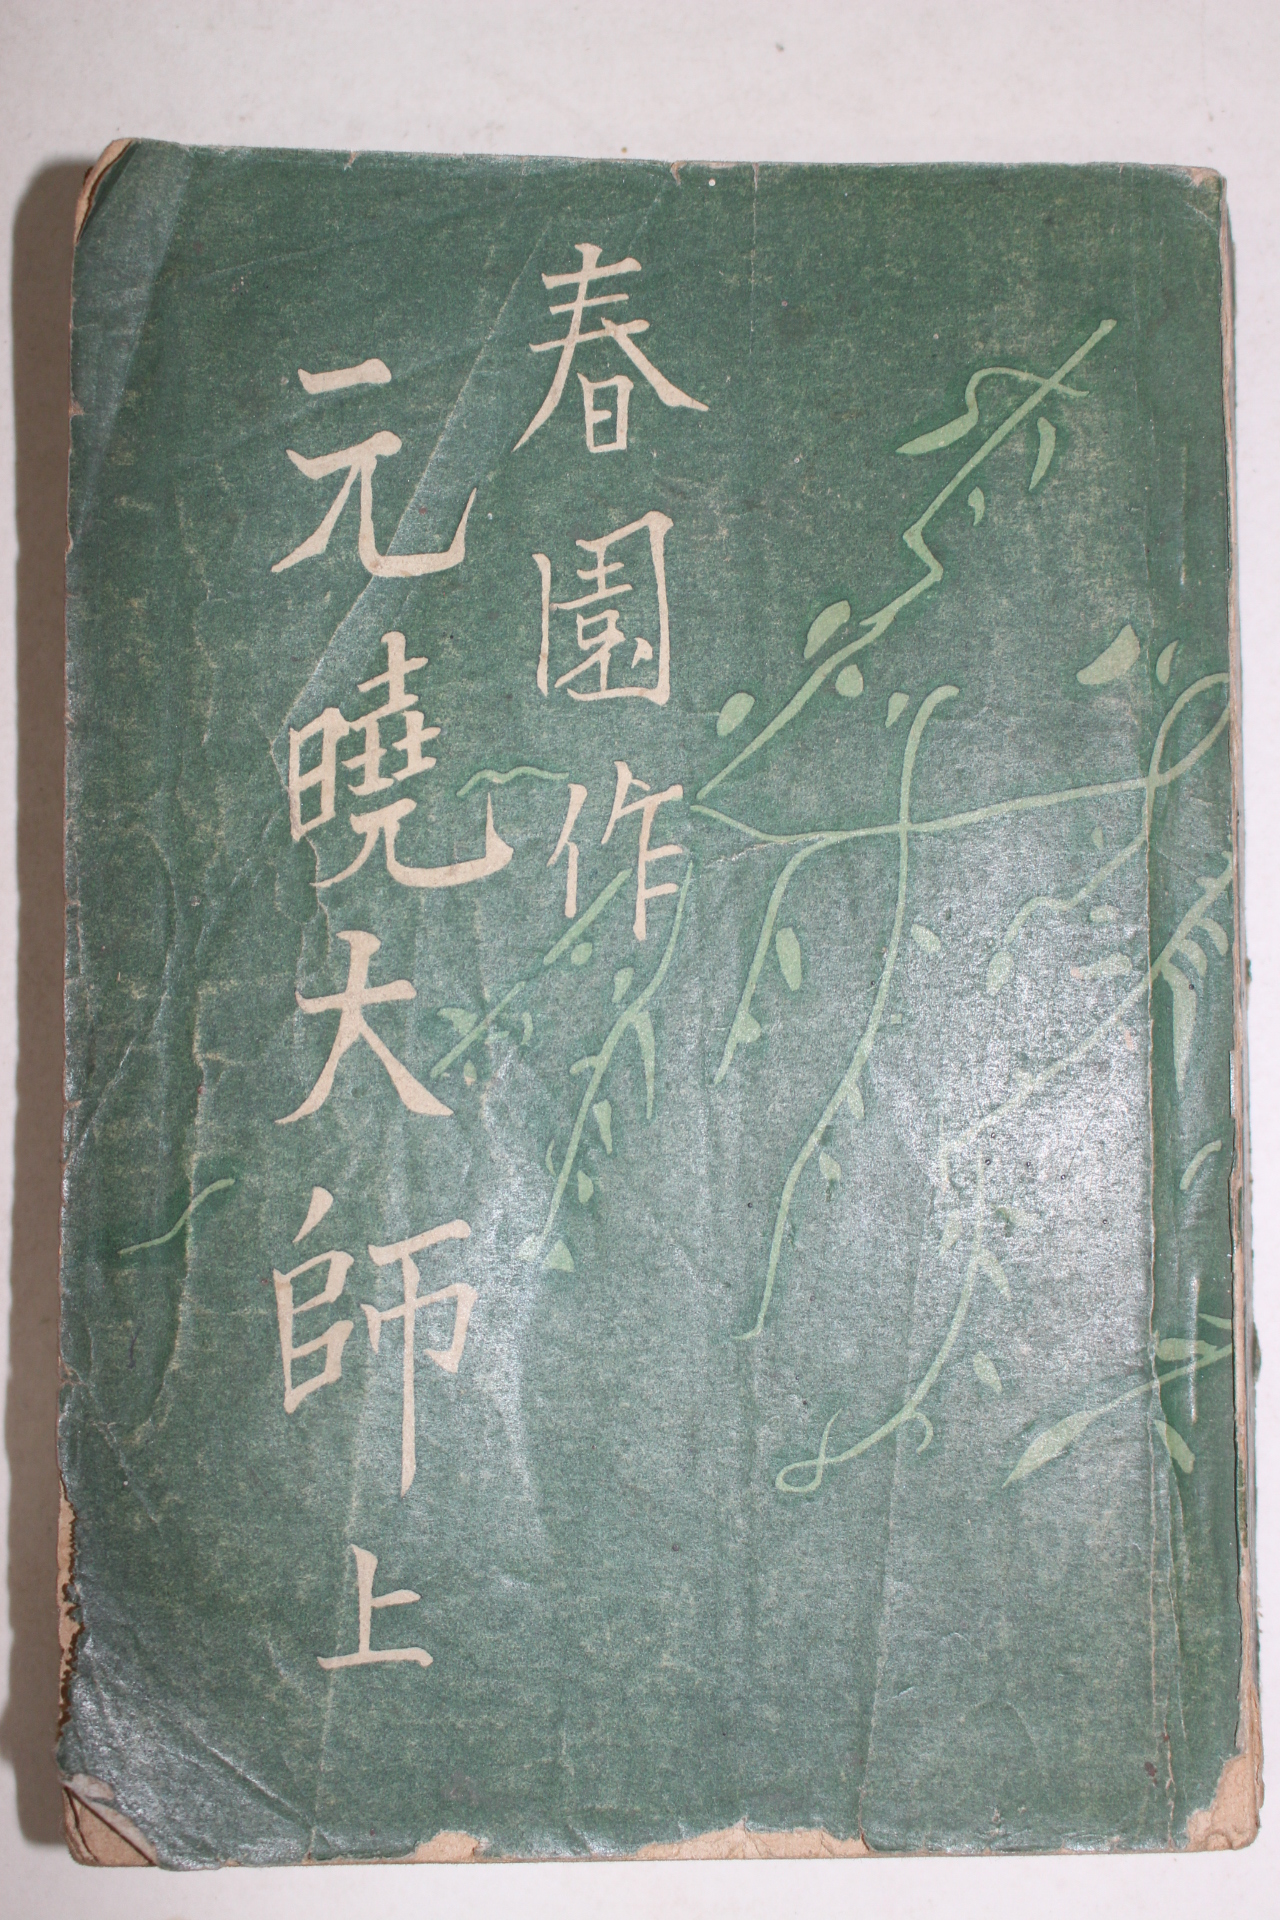 春園作
元曉大師 上